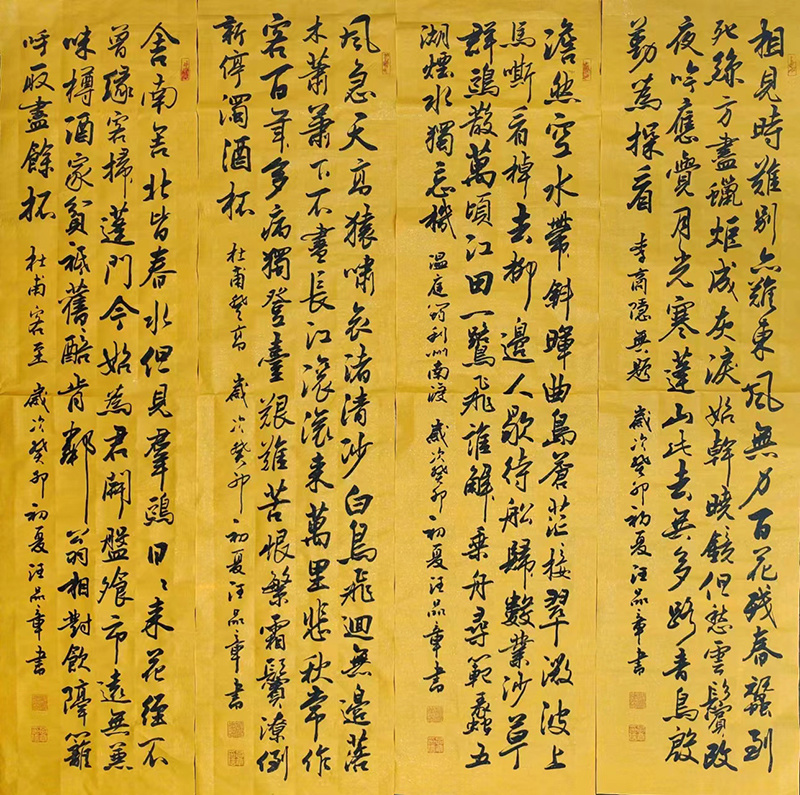 相見時難別亦難東風無力百花殘春蠶到
死絲方盡蠟炬成灰淚始幹曉鏡但愁雲鬢改
夜吟應覺月光寒蓬山此去無多路青鳥殷
勤為探看 李商隱無題 歲次癸卯初夏汪品章書
澹然空水帶斜暉曲島蒼茫接翠微波上
馬嘶看棹去柳邊人歇待船歸數叢沙草
群鷗散萬頃江田一鷺飛誰解乘舟尋範蠡五
湖煙水獨忘機 溫庭筠利州南渡 歲次癸卯初夏汪品章書
風急天高猿嘯哀渚清沙白鳥飛迴無邊落
木蕭蕭下不盡長江滾滾來萬里悲秋常作
客百年多病獨登臺艱難苦恨繁霜鬢潦倒
新停濁酒杯 杜甫登高 歲次癸卯初夏汪品章書
舍南舍北皆春水但見羣鷗日々來花徑不
曾緣客掃蓬門今始為君開盤飧市遠無兼
味樽酒家貧祇舊醅肯鄰翁相對飲隔籬
呼取盡餘杯 杜甫客至 歲次癸卯初夏汪品章書